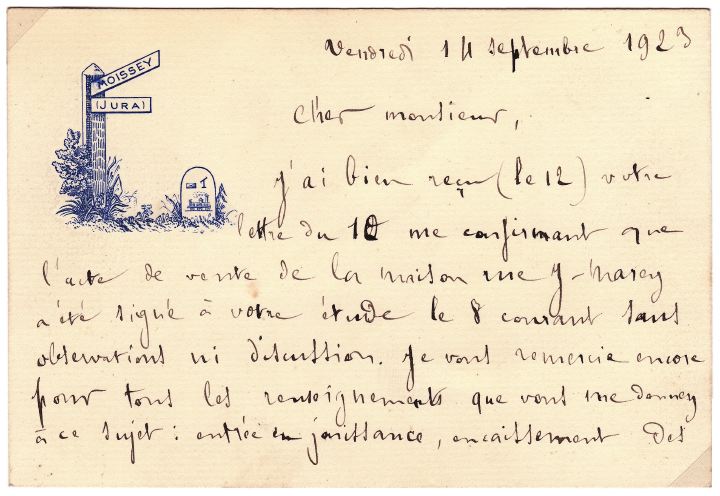 MOISSEY
(JURA)
1
Vendredi 14 septembre 1923
Cher monsieur,
J'ai bien reçu (le 12) votre
lettre du 10 me confirmant que
l'acte de vente de la maison rue J-Marey
a été signé à votre étude le 8 courant sans
observations ni discussion. Je vous remercie encore
pour tous les renseignements que vous me donnez
à ce sujet : entrée en jouissance, encaissement des